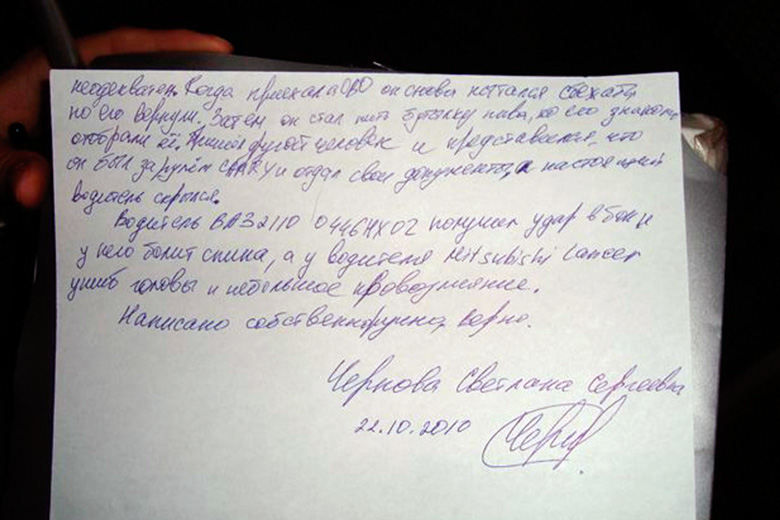 неадекватен. Когда приехала ОВО он снова пытался сбежать,
но его вернули. Затем он стал пить бутылку пива, но его знакомые
отобрали её. Пришел другой человек и представился, что
он был за рулём CAMRY и отдал свои документы, а настоящий
водитель скрылся.
Водитель ВАЗ 2110 О446НХ02 получил удар в бок и
у него болит спина, а у водителя Mitsubishi Lancer
ушиб головы и небольшое кровоизлияние.
Написано собственноручно, верно.
Чернова Светлана Сергеевна
22.10.2010